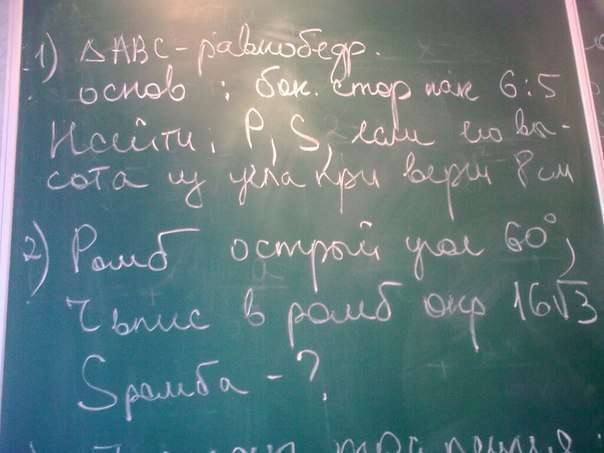 1) △ABC - равнобедр.
основ : бок. стор как 6:5
Найти: P, S, если его вы-
сота из угла при верш 8 см
2) Ромб острый угол 60°,
r впис в ромб окр 16√3
Sромба - ?